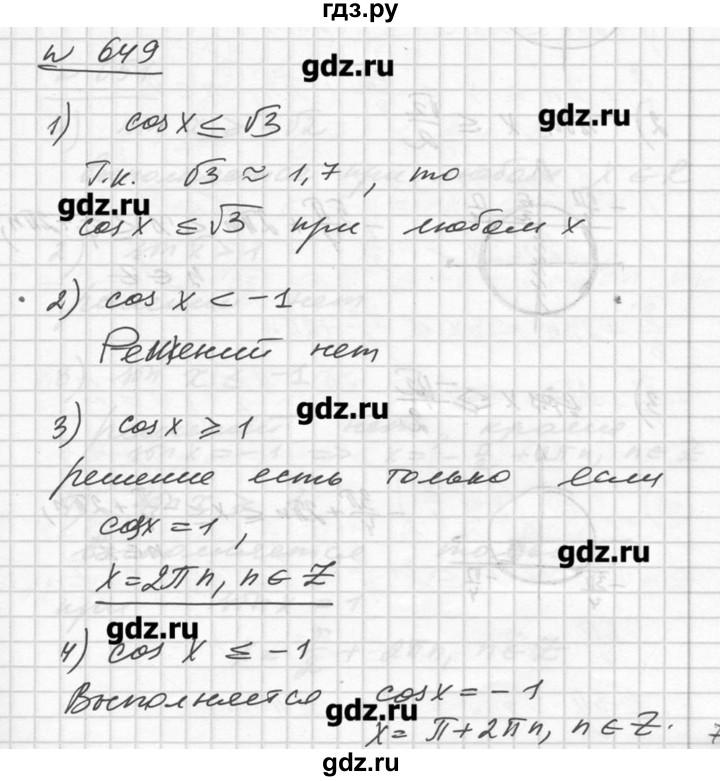 гдз.ру
№ 649
gdz.ru
1) cos x ≤ √3
gdz.ru
Т.к. √3 ≈ 1,7, то
gdz.ru
cos x ≤ √3 при любом x
2) cos x < -1
Решений нет
gdz.ru
3) cos x ⩾ 1
решение есть только если
cos x = 1,
gdz.ru
x = 2πn, n ∈ Z
gdz.ru
4) cos x ≤ -1
Выполняется cos x = -1
gdz.ru
x = π + 2πn, n ∈ Z.
гдз.ру